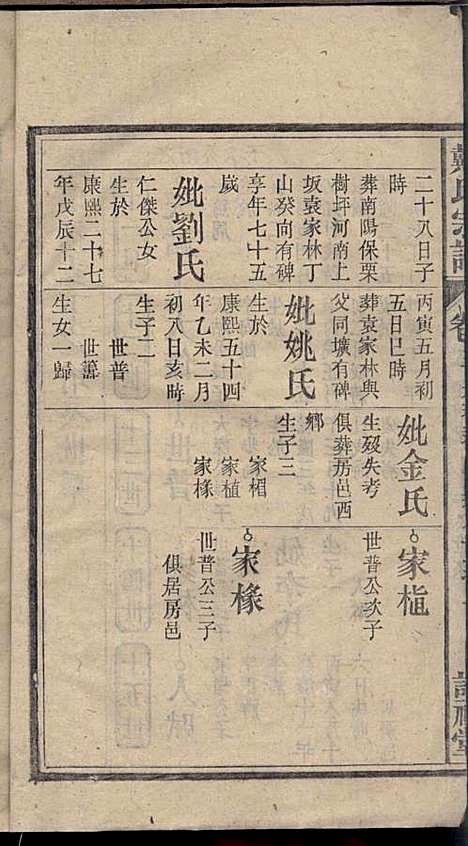 二十八日子
時
葬南陽保栗
樹坪河南上
坂袁家林丁
山癸向有碑
享年七十五
歲
妣劉氏
仁傑公女
生於
康熙二十七
年戊辰十二
丙寅五月初
五日巳時
葬袁家林與
父同壙有碑
妣姚氏
生於
康熙五十四
年乙未二月
初八日亥時
生子二
世普
世謙
生女一歸
妣金氏
生歿失考
俱葬房邑西
鄉
生子三
家楣
家植
家椽
家植
世普公次子
家椽
世普公三子
俱居房邑
戴氏宗譜
卷